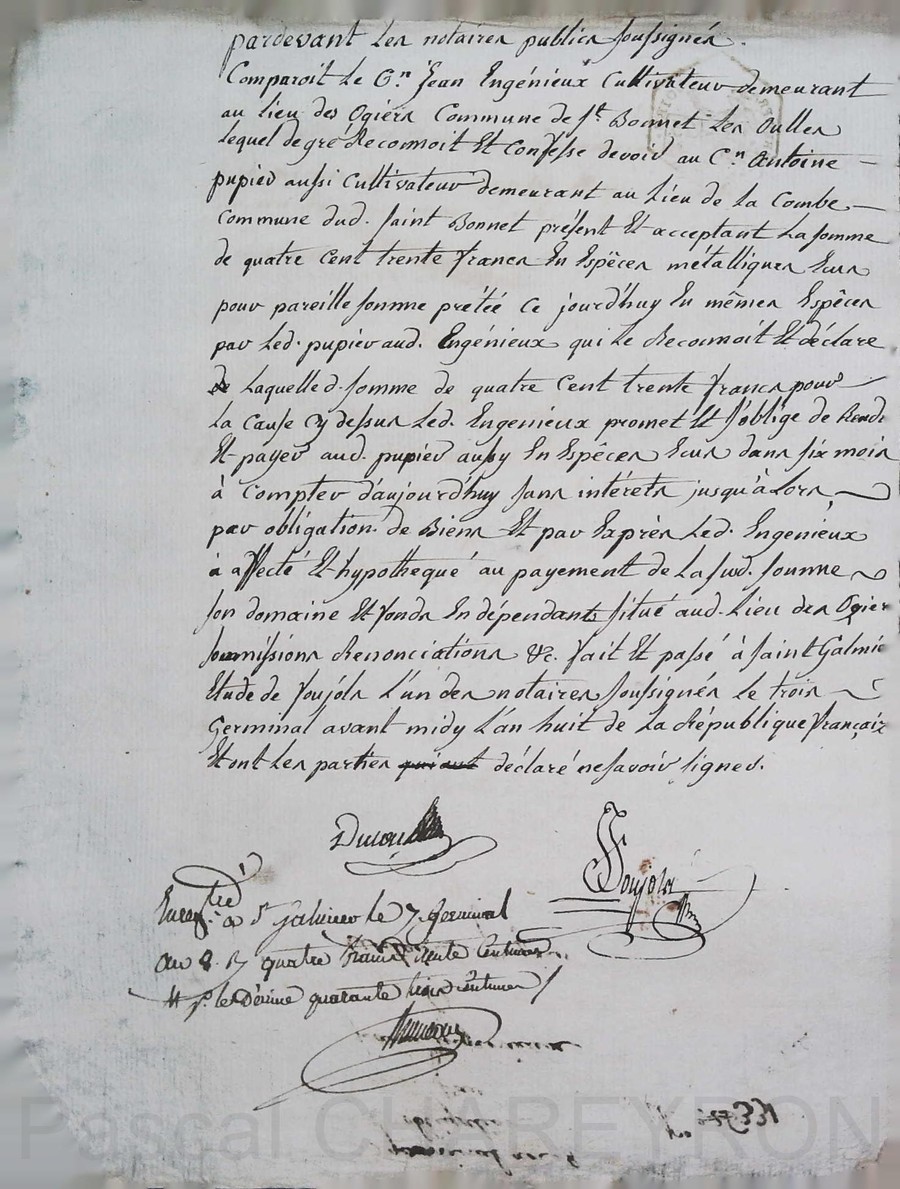 pardevant Les notaires publics soussignés.
Comparoit Le C.n Jean Engénieux Cultivateur demeurant
au Lieu des Ogiers Commune de S.t Bonnet Les Oulles
Lequel de gré Reconnoit Et Confesse devoir au C.n Antoine —
pupier aussi Cultivateur demeurant au Lieu de La Combe —
Commune dud. saint Bonnet présent Et acceptant La somme
de quatre Cent trente francs En Espêces métalliques Eccus
pour pareille somme prétée Ce jourd'huy En mêmes Espêces
par Led. pupier aud. Engénieux qui Le Reconnoit Et déclare
Laquelle d. somme de quatre Cent trente francs pour
La Cause Cy dessus Led. Engenieux promet Et s'oblige de Rendre
Et payer aud. pupier aussy En Espêces Ecus dans six mois
à Compter d'aujourd'huy sans intérets jusqu'à Lors
par obligation de Biens Et par Exprès Led. Engenieux
à affecté Et hypothequé au payement de La sud. somme
son domaine Et fonds En dépendants situé aud. Lieu des Ogiers
soumissions Renonciations &c. fait Et passé à saint Galmier
Etude de Soujols L'un des notaires soussignés Le trois
Germinal avant midy L'an huit de La République française
Et ont Les parties déclaré ne savoir signer.
Soujols
a St Galmier le 7 Germinal
an 8. R quatre francs trente Centimes
pr. le Décime quarante trois Centimes
Pascal CHAREYRON